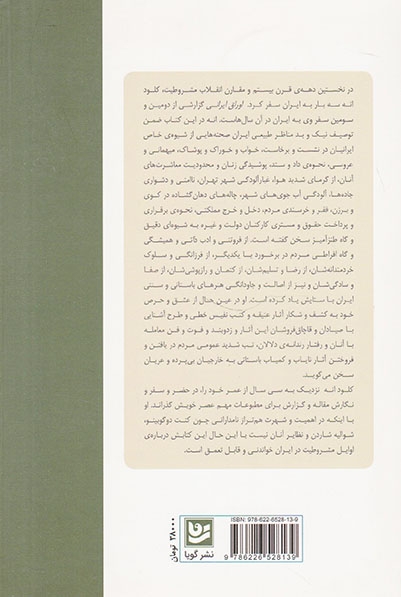 در نخستین دهه‌ی قرن بیستم و مقارن انقلاب مشروطیت، کلود
انه سه بار به ایران سفر کرد. اوراق ایرانی گزارشی از دومین و
سومین سفر وی به ایران در آن سال‌هاست. انه در این کتاب ضمن
توصیف نیک و بد مناظر طبیعی ایران صحنه‌هایی از شیوه‌ی خاص
ایرانیان در نشست و برخاست، خواب و خوراک و پوشاک، میهمانی و
عروسی، نحوه‌ی داد و ستد، پوشیدگی زنان و محدودیت معاشرت‌های
آنان، از گرمای شدید هوا، غبارآلودگی شهر تهران، ناامنی و دشواری
جاده‌ها، آلودگی آب جوی‌های شهر، چاله‌های دهان‌گشاده در کوی
و برزن، فقر و خرسندی مردم، دخل و خرج مملکتی، نحوه‌ی برقراری
و پرداخت حقوق و مستمری کارکنان دولت و غیره به شیوه‌ای دقیق
و گاه طنزآمیز سخن گفته است. از فروتنی و ادب ذاتی و همیشگی
و گاه افراطی مردم در برخورد با یکدیگر، از فرزانگی و سلوک
خردمندانه‌شان، از رضا و تسلیم‌شان، از کتمان و رازپوشی‌شان، از صفا
و سادگی‌شان و نیز از اصالت و جاودانگی هنرهای باستانی و سنتی
ایران با ستایش یاد کرده است. او در عین حال از عشق و حرص
خود به کشف و شکار آثار عتیقه و کتب نفیس خطی و طرح آشنایی
با صیادان و قاچاق‌فروشان این آثار و زدوبند و فوت و فن معامله
با آنان و رفتار رندانه‌ی دلالان، تب شدید عمومی مردم در یافتن و
فروختن آثار نایاب و کمیاب باستانی به خارجیان بی‌پرده و عریان
سخن می‌گوید.
کلود انه نزدیک به سی سال از عمر خود را، در حضر و سفر و
نگارش مقاله و گزارش برای مطبوعات مهم عصر خویش گذراند. او
با اینکه در اهمیت و شهرت هم‌تراز نامدارانی چون کنت دوگوبینو،
شوالیه شاردن و نظایر آنان نیست با این حال این کتابش درباره‌ی
اوایل مشروطیت در ایران خواندنی و قابل تعمق است.
ISBN: 978-622-6528-13-9
9 786226 528139
نشر گویا
۳۸۰۰۰ تومان